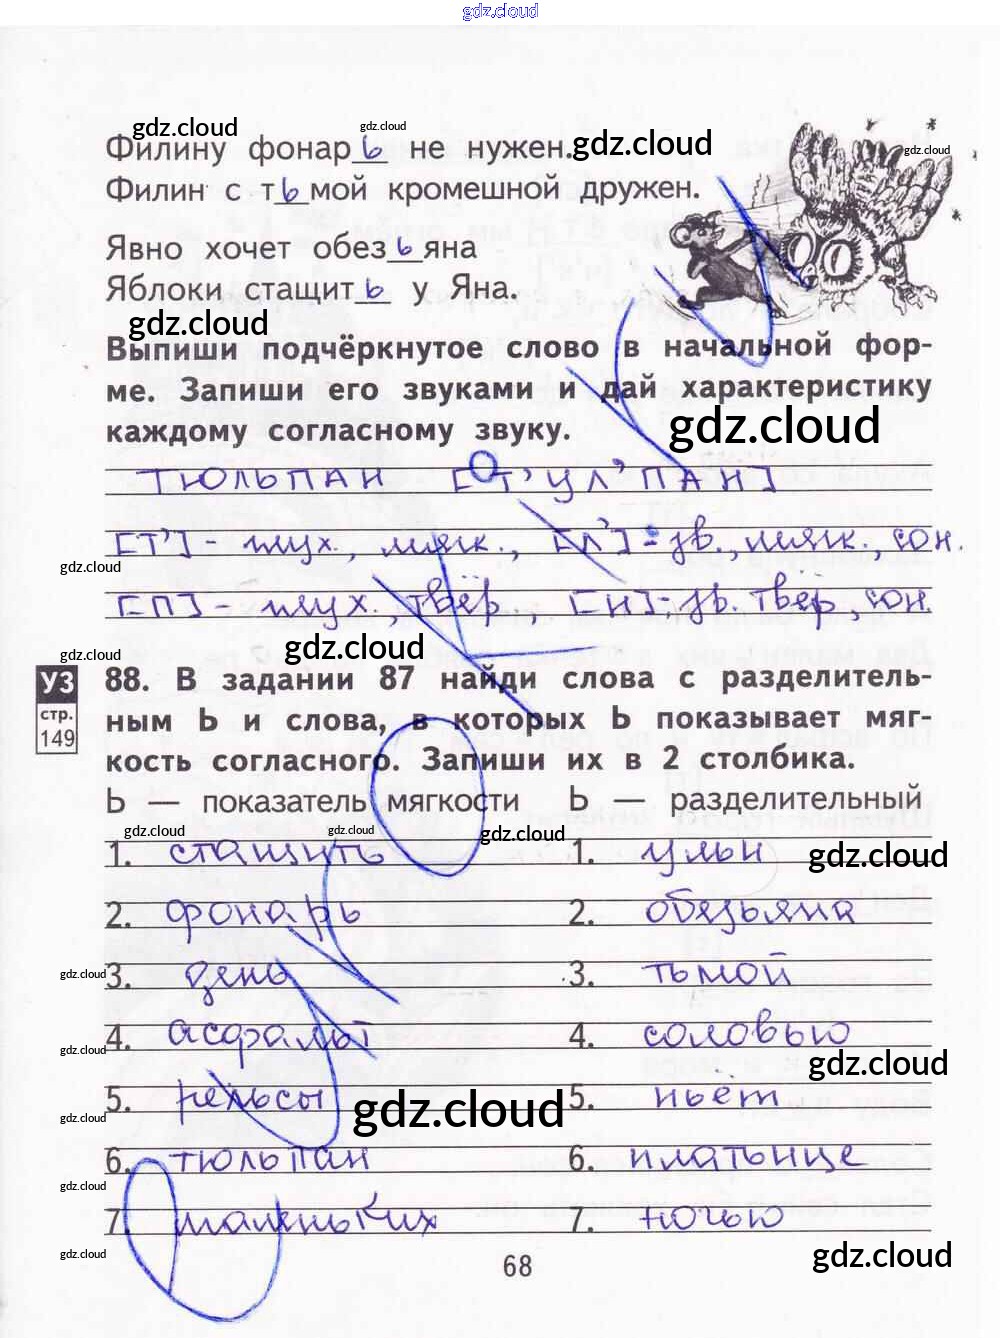 gdz.cloud
gdz.cloud gdz.cloud gdz.cloud gdz.cloud
Филину фонарь не нужен.
Филин с тьмой кромешной дружен.
Явно хочет обезьяна
Яблоки стащить у Яна.
gdz.cloud
Выпиши подчёркнутое слово в начальной фор-
ме. Запиши его звуками и дай характеристику
каждому согласному звуку.
gdz.cloud
ТЮЛЬПАН [Т'УЛ'ПАН]
[Т'] - глух., мягк., [Л'] - зв., мягк., сон.
gdz.cloud
[П] - глух., твёр, [Н] - зв. твер, сон.
gdz.cloud gdz.cloud
УЗ
стр.
149
88. В задании 87 найди слова с разделитель-
ным Ь и слова, в которых Ь показывает мяг-
кость согласного. Запиши их в 2 столбика.
Ь — показатель мягкости Ь — разделительный
gdz.cloud gdz.cloud gdz.cloud gdz.cloud
1. стащить 1. ульи
2. фонарь 2. обезьяна
gdz.cloud
3. день 3. тьмой
4. асфальт 4. соловью
gdz.cloud gdz.cloud
5. рельсы 5. пьёт
gdz.cloud gdz.cloud
6. тюльпан 6. платьице
gdz.cloud
7. маленьких 7. ночью
gdz.cloud gdz.cloud
68